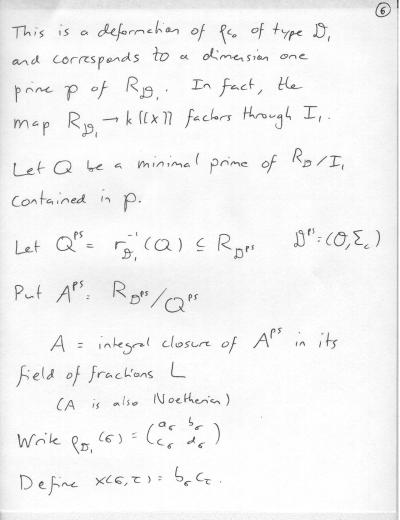 6
This is a deformation of ρ_{c_0} of type 𝒟_1
and corresponds to a dimension one
prime p of R_{𝒟_1}. In fact, the
map R_{𝒟_1} → k[[x]] factors through I_1.
Let Q be a minimal prime of R_𝒟/I_1
contained in p.
Let Q^{ps} = r_{𝒟_1}^{-1}(Q) ⊆ R_{𝒟^{ps}} 𝒟^{ps}=(O,Σ_c)
Put A^{ps} = R_{𝒟^{ps}}/Q^{ps}
A = integral closure of A^{ps} in its
field of fractions L
(A is also Noetherian)
Write ρ_{𝒟_1}(σ) = (a_σ b_σ
c_σ d_σ)
Define x(σ,τ) = b_σ c_τ.